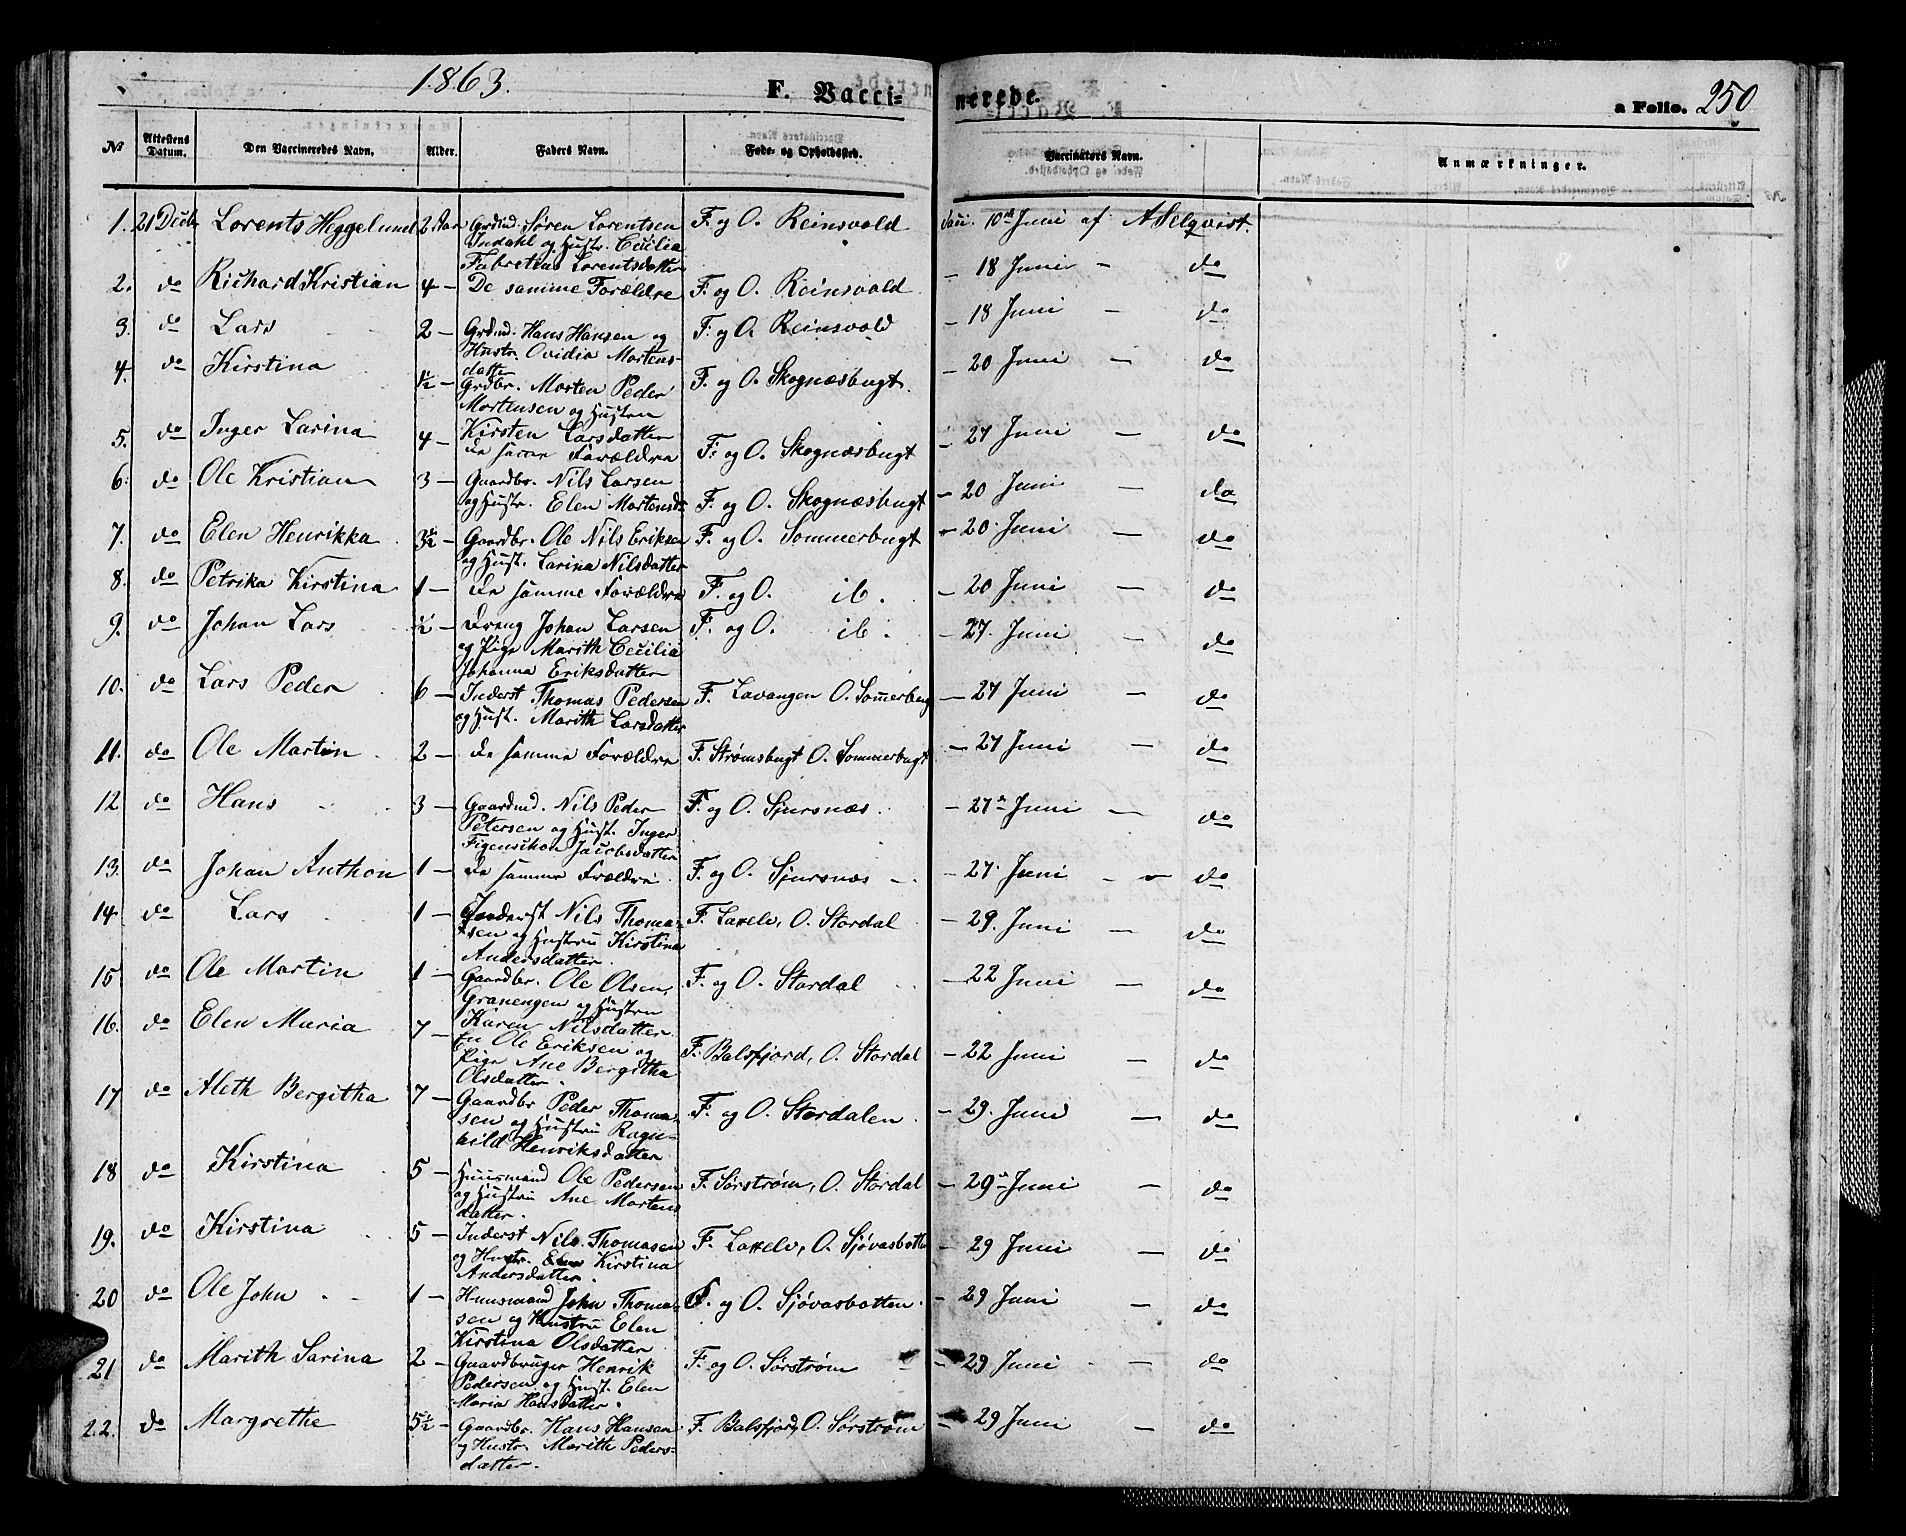 1863. F. Vacci- nerede. a Folio. 250
No Attestens Datum. Den Vaccineredes Navn. Alder. Faders Navn. Føde- og Opholdssted. Vaccinators Navn. Anmærkninger.
1. 21 Decbr Lorents Heggelund 2 Aar Grdmd. Søren Lorentsen F. og O. Reinsvold Vacc. 10de Juni af A Selqvist.
Indahl og Hustr. Cecilia
Fabretius Lorentsdatter
2. do Richard Kristian 4 — De samme Forældre F. og O. Reinsvold — 18 Juni — do
3. do Lars 2 — Grdmd. Hans Hansen og F. og O. Reinsvold — 18 Juni — do
Hustr. Ovidia Mortens-
datter
4. do Kirstina 1½ — Grdbr. Morten Peder F. og O. Skognæsbugt. — 20 Juni — do
Mortensen og Hustru
Kirsten Larsdatter
5. do Inger Larina 4 — De samme Forældre F. og O. Skognæsbugt — 27 Juni — do
6. do Ole Kristian 3 — Gaardbr. Nils Larsen F. og O. Skognæsbugt — 20 Juni — do
og Hustr. Elen Mortensdr
7. do Elen Henrikka 3½ — Gaardbr. Ole Nils Eriksen F. og O. Sommerbugt — 20 Juni — do
og Hust. Larina Nilsdatter
8. do Petrika Kirstina 1 — De samme Forældre F. og O. ib. — 20 Juni — do
9. do Johan Lars ½ — Dreng Johan Larsen F. og O. ib. — 27. Juni — do
og Pige Marith Cecilia
Johanna Eriksdatter
10. do Lars Peder 6 — Inderst Thomas Pedersen F. Lavangen O. Sommerbugt — 27 Juni — do
og Hust. Marith Larsdatter
11. do Ole Martin 2 — De samme Forældre F. Strømsbugt O. Sommerbugt — 27 Juni — do
12 do Hans 3 — Gaardmd. Nils Peder F. og O. Sjursnæs. — 27de Juni — do
Petersen og Hust. Inger
Figenschou Jacobsdatter
13. do Johan Anthon 1 — De samme Frældre F. og O. Sjursnæs — 27. Juni — do
14. do Lars 1 — Inderst Nils Thoma- F. Laxelv, O. Stordal — 29. Juni — do
sen og Hustru Kirstina
Andersdatter.
15 do Ole Martin 1 — Gaardbr. Ole Olsen F. og O. Stordal — 22 Juni — do
Granengen og Hustru
Karen Nilsdatter
16. do Elen Maria 7 — Ole Eriksen og F. Balsfjord, O. Stordal — 22 Juni — do
Pige Ane Bergitha
Olsdatter.
17 do Aleth Bergitha 7 — Gaardbr Peder Thoma- F. og O. Stordalen. — 29. Juni — do
sen og Hustru Ragn-
hild Henriksdatter
18 do Kirstina 5 — Huusmand Ole Pedersen F. Sørstrøm, O. Stordal — 29de Juni — do
og Hustru Ane Mortens
datter.
19. do Kirstina 5 — Inderst Nils Thomasen F. Laxelv, O. Sjøvasbotten — 29 Juni — do
og Hustr. Elen Kirstina
Andersdatter.
20 do Ole John 1 — Huusmand John Thoma- F. og O. Sjøvasbotten. — 29 Juni — do
sen og Hustru Elen
Kirstina Olsdatter
21 do Marith Sarina 2 — Gaardbruger Henrik F. og O. Sørstrøm — 29 Juni — do
Pedersen og Hust. Elen
Maria Hansdatter.
22. do Margrethe 5½ — Gaardbr. Hans Hansen F. Balsfjord, O. Sørstrøm — 29 Juni — do
og Hustr. Marith Peders-
datter.